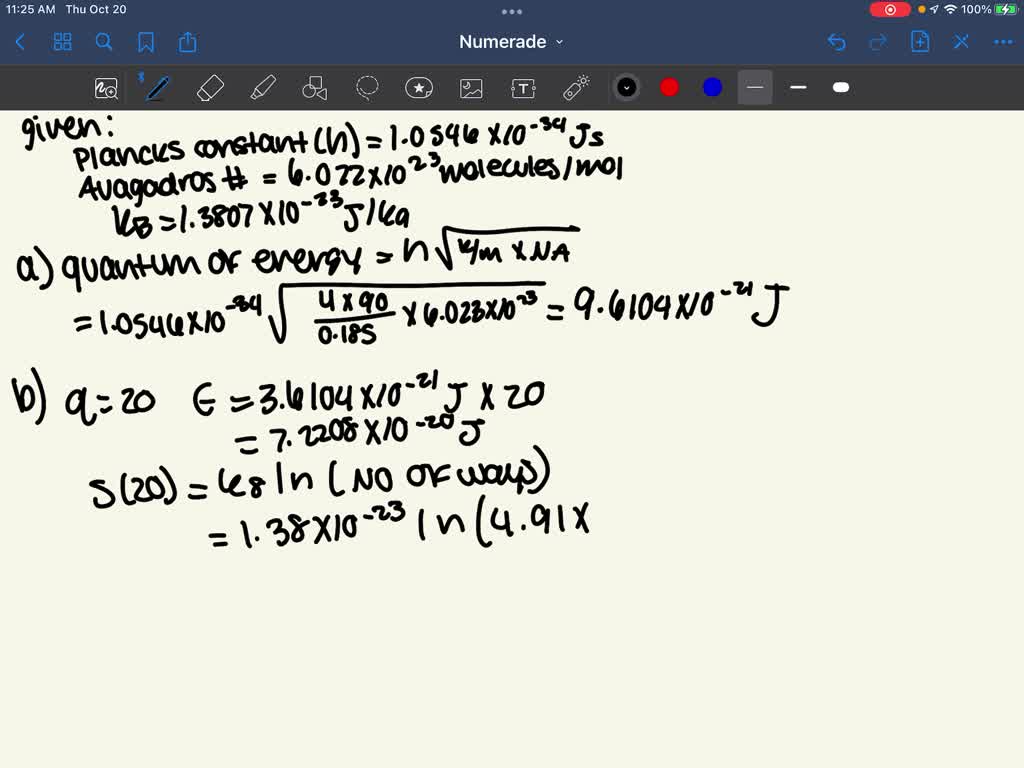 11:25 AM Thu Oct 20
100%
Numerade
given:
Plancks constant (h) = 1.0546 x 10^-34 Js
Avagadros # = 6.022 x 10^23 molecules/mol
kB = 1.3807 x 10^-23 J/ka
a) quantum of energy = h √(k/m x NA)
= 1.0546 x 10^-34 √(4 x 90 / 0.185 x 6.023 x 10^23) = 9.6104 x 10^-21 J
b) q = 20 E = 3.6104 x 10^-21 J x 20
= 7.2208 x 10^-20 J
S(20) = kB ln (NO OF ways)
= 1.38 x 10^-23 ln (4.91 x